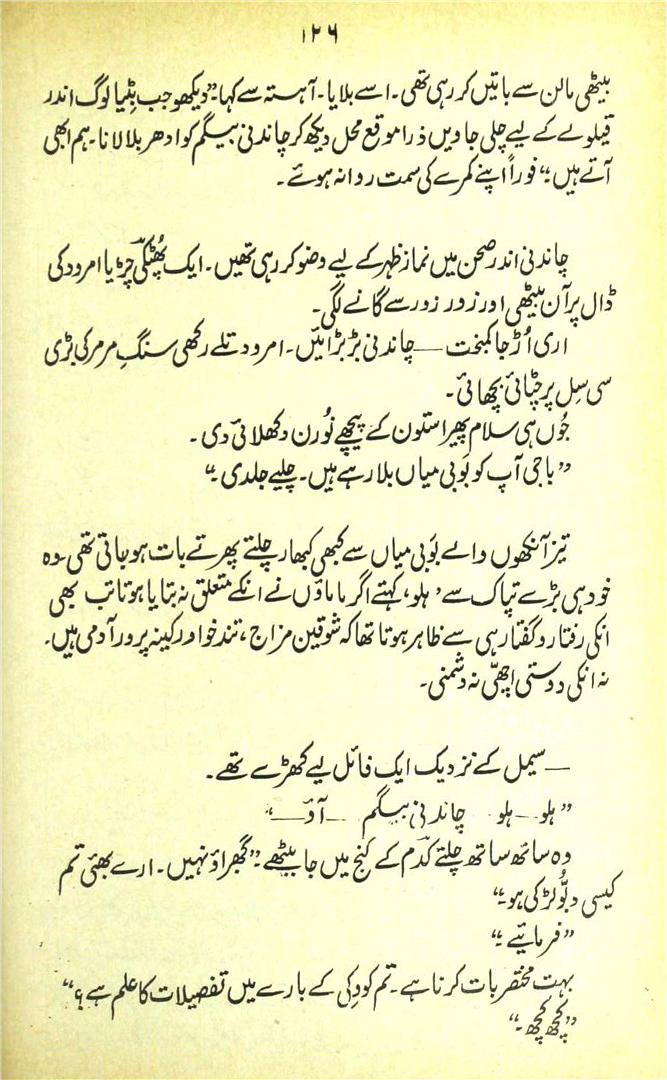 ۱۲۶
بیٹھی مالن سے باتیں کر رہی تھی۔ اسے بلایا۔ آہستہ سے کہا۔ ”دیکھو جب بٹیا لوگ اندر
قیلولے کے لیے چلی جاویں ذرا موقع محل دیکھ کر چاندنی بیگم کو ادھر بلا لانا۔ ہم ابھی
آتے ہیں۔“ فوراً اپنے کمرے کی سمت روانہ ہوئے۔
چاندنی اندر صحن میں نماز ظہر کے لیے وضو کر رہی تھیں۔ ایک پُھٹکی چڑیا امرود کی
ڈال پر آن بیٹھی اور زور زور سے گانے لگی۔
اری اُڑ جا کمبخت — چاندنی بڑبڑائیں۔ امرود تلے رکھی سنگِ مرمر کی بڑی
سی سِل پر چٹائی بچھائی۔
جُوں ہی سلام پھیرا ستون کے پیچھے نُورن دکھلائی دی۔
”باجی آپ کو بَوبی میاں بلا رہے ہیں۔ چلیے جلدی۔“
تیز آنکھوں والے بَوبی میاں سے کبھی کبھار چلتے پھرتے بات ہو جاتی تھی۔ وہ
خود ہی بڑے تپاک سے ’ہلو‘ کہتے اگر ماماؤں نے انکے متعلق نہ بتایا ہوتا تب بھی
انکی رفتار و گفتار ہی سے ظاہر ہوتا تھا کہ شوقین مزاج، تند خو اور کینہ پرور آدمی ہیں۔
نہ انکی دوستی اچھی نہ دشمنی۔
— سیمل کے نزدیک ایک فائل لیے کھڑے تھے۔
”ہلو— ہلو چاندنی بیگم — آؤ —“
وہ ساتھ ساتھ چلتے کدَم کے کنج میں جا بیٹھے۔ ”گھبراؤ نہیں۔ ارے بھئی تم
کیسی دبُّو لڑکی ہو۔“
”فرمائیے۔“
بہت مختصر بات کرنا ہے۔ تم کو وِکی کے بارے میں تفصیلات کا علم ہے؟“
”کچھ کچھ۔“